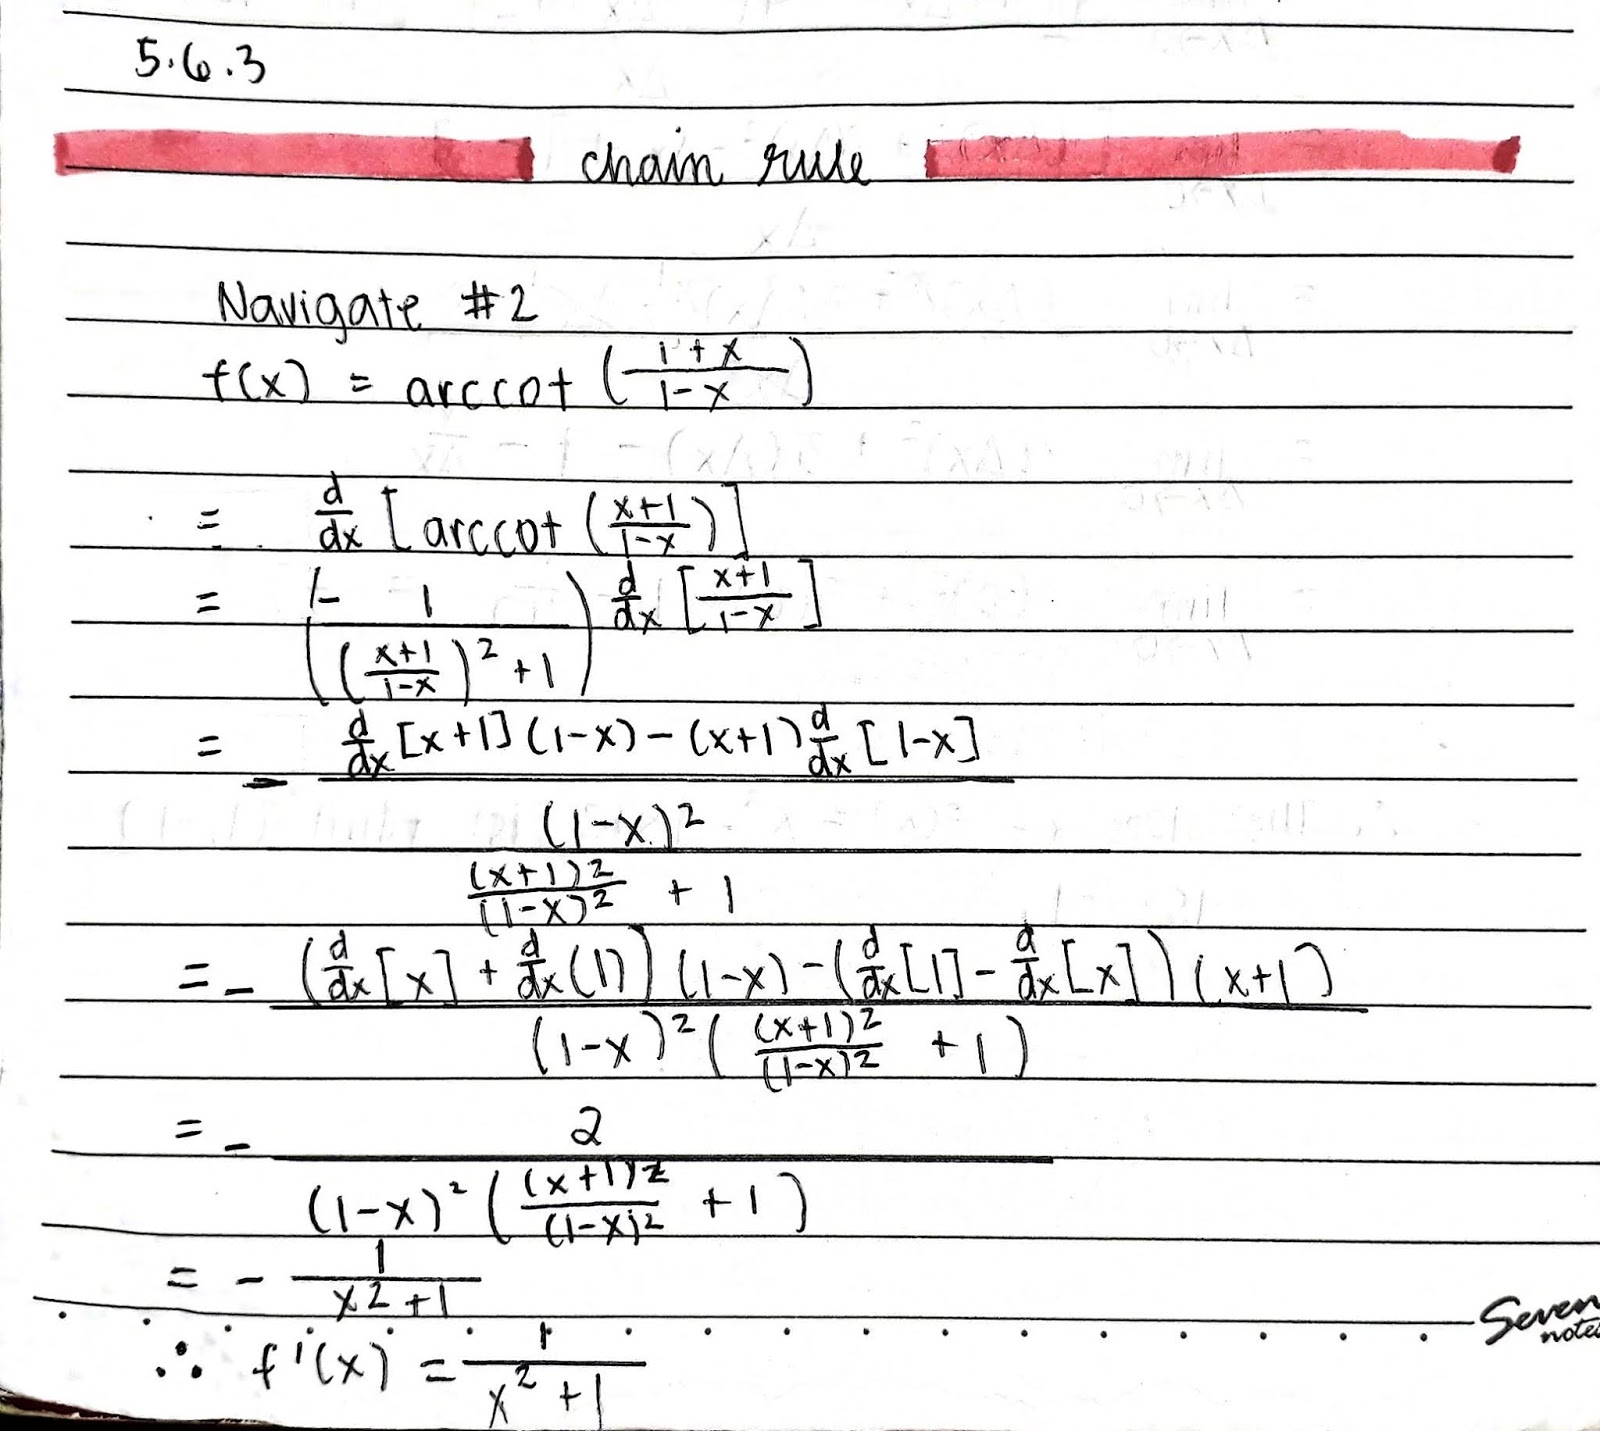 5.6.3
chain rule
Navigate #2
f(x) = arccot ((1+x)/(1-x))
= d/dx [arccot ((x+1)/(1-x))]
= (- 1/(((x+1)/(1-x))² + 1)) d/dx [(x+1)/(1-x)]
= - ((d/dx [x+1] (1-x) - (x+1) d/dx [1-x])/(1-x)²)/((x+1)²/(1-x)² + 1)
= - ((d/dx [x] + d/dx (1)) (1-x) - (d/dx [1] - d/dx [x]) (x+1))/((1-x)² ((x+1)²/(1-x)² + 1))
= - 2/((1-x)² ((x+1)²/(1-x)² + 1))
= - 1/(x²+1)
∴ f'(x) = 1/(x²+1)
Seven
notes